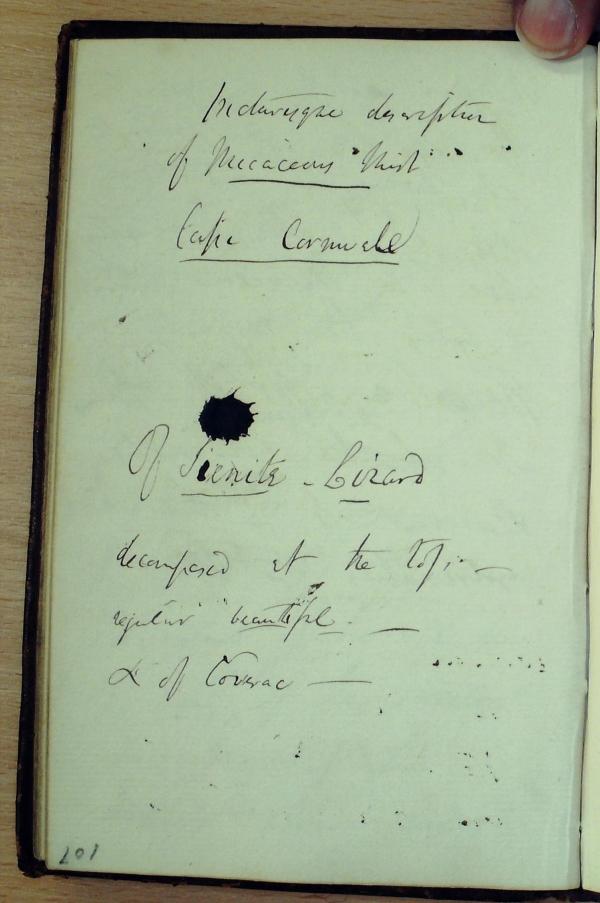 Picturesque description
of Micaceous Shist
Cape Cornwall
Of Sienite - Lizard
decomposed at the top; —
regular beautiful. —
& of Coverac —
107